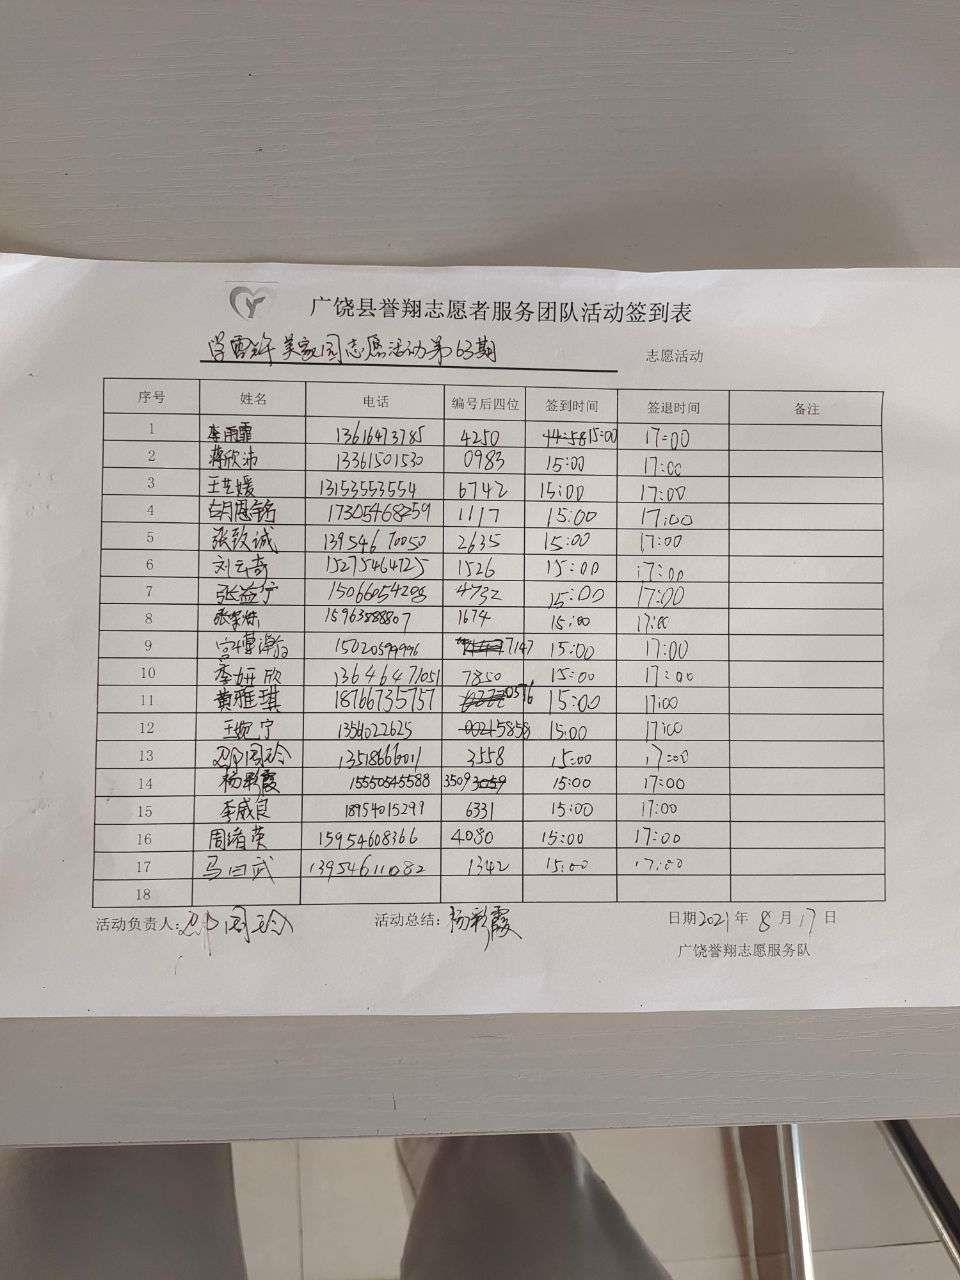 广饶县誉翔志愿者服务团队活动签到表
学雷锋 美家园志愿活动第63期 志愿活动
序号 姓名 电话 编号后四位 签到时间 签退时间 备注
1 李雨霏 13616473785 4250 15:00 17:00
2 蒋欣沛 13361501530 0983 15:00 17:00
3 王艺媛 13153553554 6742 15:00 17:00
4 17305468259 1117 15:00 17:00
5 张致诚 13954670050 2635 15:00 17:00
6 刘云奇 15275464725 1526 15:00 17:00
7 张益宁 15066054208 4732 15:00 17:00
8 15963888807 1674 15:00 17:00
9 7147 15:00 17:00
10 李妍欣 13646471051 7850 15:00 17:00
11 黄雅琪 18766735757 0576 15:00 17:00
12 王婉宁 5858 15:00 17:00
13 邵同玲 13518666011 3558 15:00 17:00
14 杨彩霞 15550545588 3509 15:00 17:00
15 李咸良 18954015299 6331 15:00 17:00
16 周绪英 15954608366 4080 15:00 17:00
17 马曰武 13954611082 1342 15:00 17:00
18
活动负责人: 邵同玲 活动总结: 杨彩霞 日期 2021 年 8 月 17 日
广饶誉翔志愿服务队